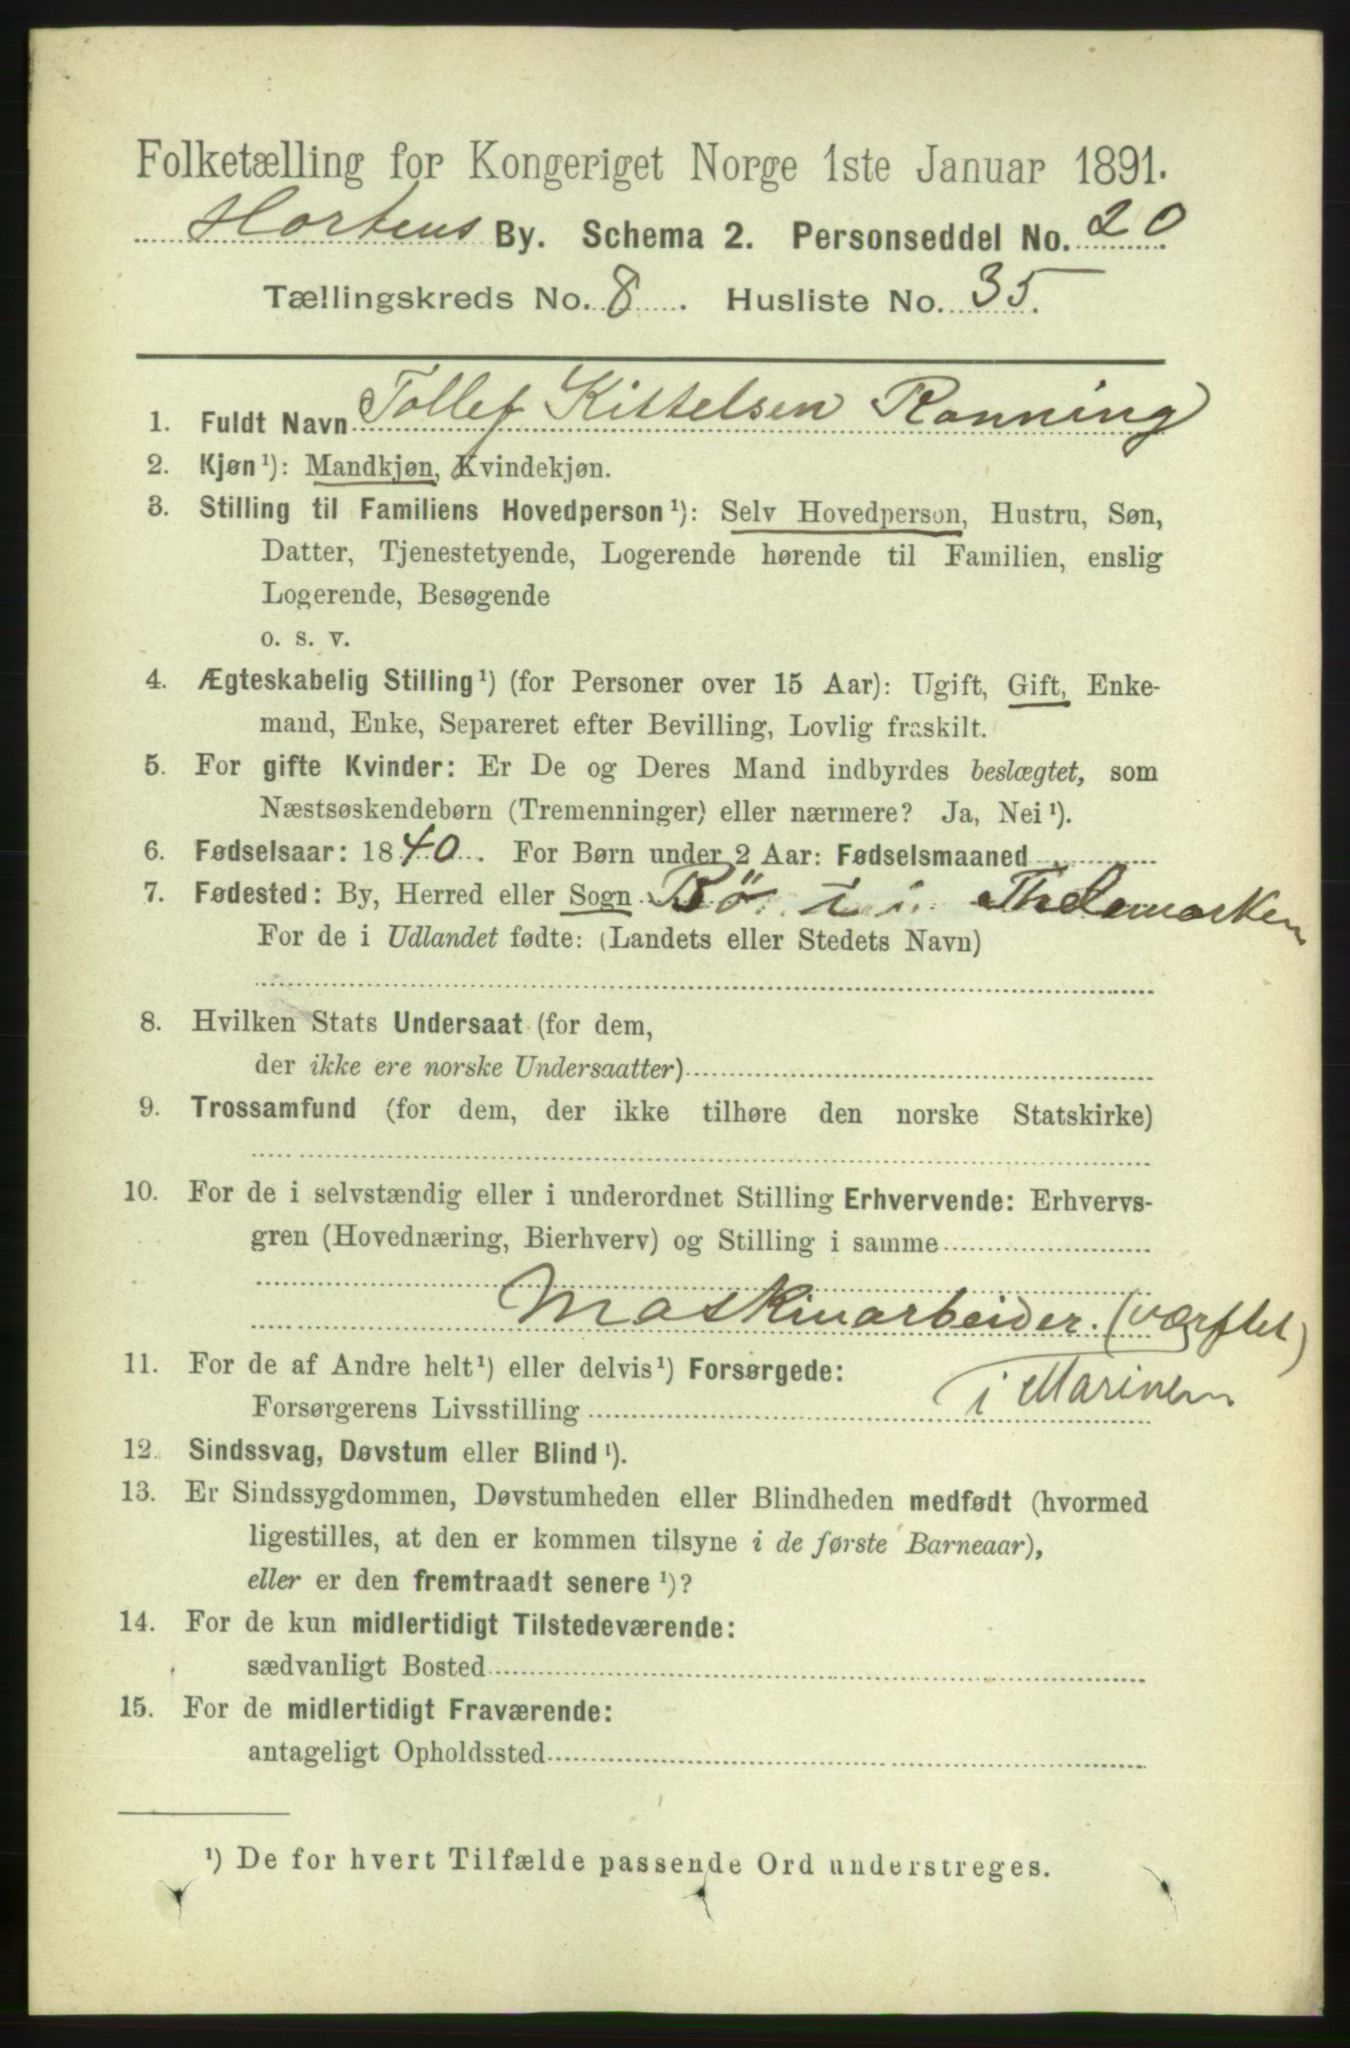 Folketælling for Kongeriget Norge 1ste Januar 1891.
Hortens By. Schema 2. Personseddel No. 20
Tællingskreds No. 8. Husliste No. 35.
1. Fuldt Navn Tollef Kittelsen Rønning
2. Kjøn ¹): Mandkjøn, Kvindekjøn.
3. Stilling til Familiens Hovedperson ¹): Selv Hovedperson, Hustru, Søn,
Datter, Tjenestetyende, Logerende hørende til Familien, enslig
Logerende, Besøgende
o. s. v.
4. Ægteskabelig Stilling ¹) (for Personer over 15 Aar): Ugift, Gift, Enke-
mand, Enke, Separeret efter Bevilling, Lovlig fraskilt.
5. For gifte Kvinder: Er De og Deres Mand indbyrdes beslægtet, som
Næstsøskendebørn (Tremenninger) eller nærmere? Ja, Nei ¹).
6. Fødselsaar: 1840. For Børn under 2 Aar: Fødselsmaaned
7. Fødested: By, Herred eller Sogn Bö i Thelemarken
For de i Udlandet fødte: (Landets eller Stedets Navn)
8. Hvilken Stats Undersaat (for dem,
der ikke ere norske Undersaatter)
9. Trossamfund (for dem, der ikke tilhøre den norske Statskirke)
10. For de i selvstændig eller i underordnet Stilling Erhvervende: Erhvervs-
gren (Hovednæring, Bierhverv) og Stilling i samme
Maskinarbeider. (værftet)
11. For de af Andre helt ¹) eller delvis ¹) Forsørgede:
i Marinen
Forsørgerens Livsstilling
12. Sindssvag, Døvstum eller Blind ¹).
13. Er Sindssygdommen, Døvstumheden eller Blindheden medfødt (hvormed
ligestilles, at den er kommen tilsyne i de første Barneaar),
eller er den fremtraadt senere ¹)?
14. For de kun midlertidigt Tilstedeværende:
sædvanligt Bosted
15. For de midlertidigt Fraværende:
antageligt Opholdssted
¹) De for hvert Tilfælde passende Ord understreges.